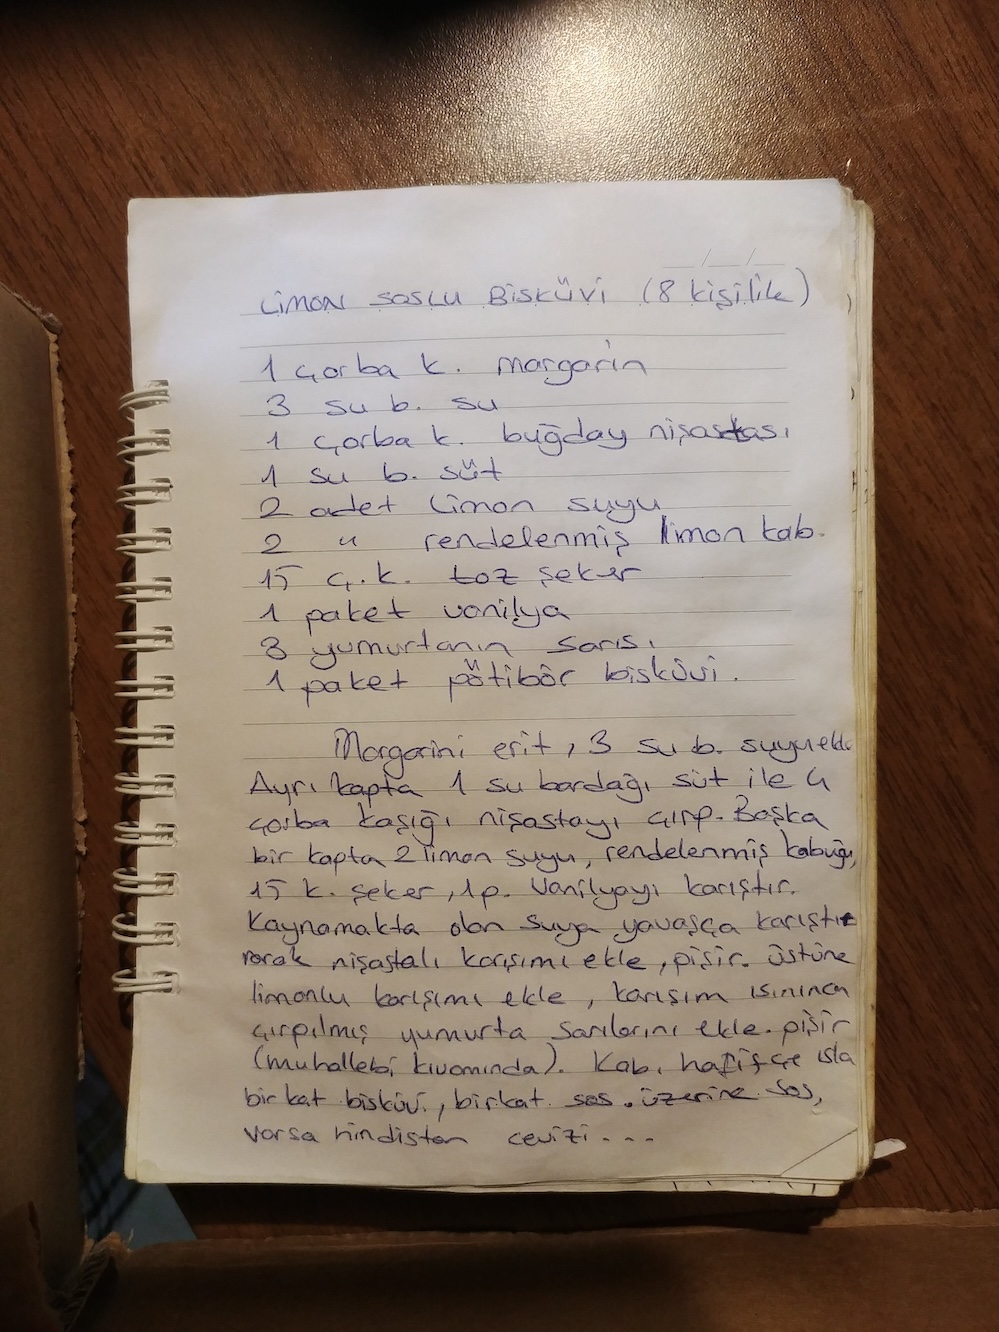 LİMON SOSLU BİSKÜVİ (8 kişilik)
1 çorba k. margarin
3 su b. su
1 çorba k. buğday nişastası
1 su b. süt
2 adet limon suyu
2 " rendelenmiş limon kab.
15 ç.k. toz şeker
1 paket vanilya
3 yumurtanın sarısı
1 paket pötibör bisküvi.
Margarini erit, 3 su b. suyu ekle
Ayrı kapta 1 su bardağı süt ile 4
çorba kaşığı nişastayı çırp. Başka
bir kapta 2 limon suyu, rendelenmiş kabuğu,
15 k. şeker, 1 p. vanilyayı karıştır.
Kaynamakta olan suya yavaşça karıştı
rarak nişastalı karışımı ekle, pişir. üstüne
limonlu karışımı ekle, karışım ısınınca
çırpılmış yumurta sarılarını ekle. pişir
(muhallebi kıvamında). Kabı hafifçe ısla
bir kat bisküvi, bir kat sos. üzerine sos,
varsa hindistan cevizi...